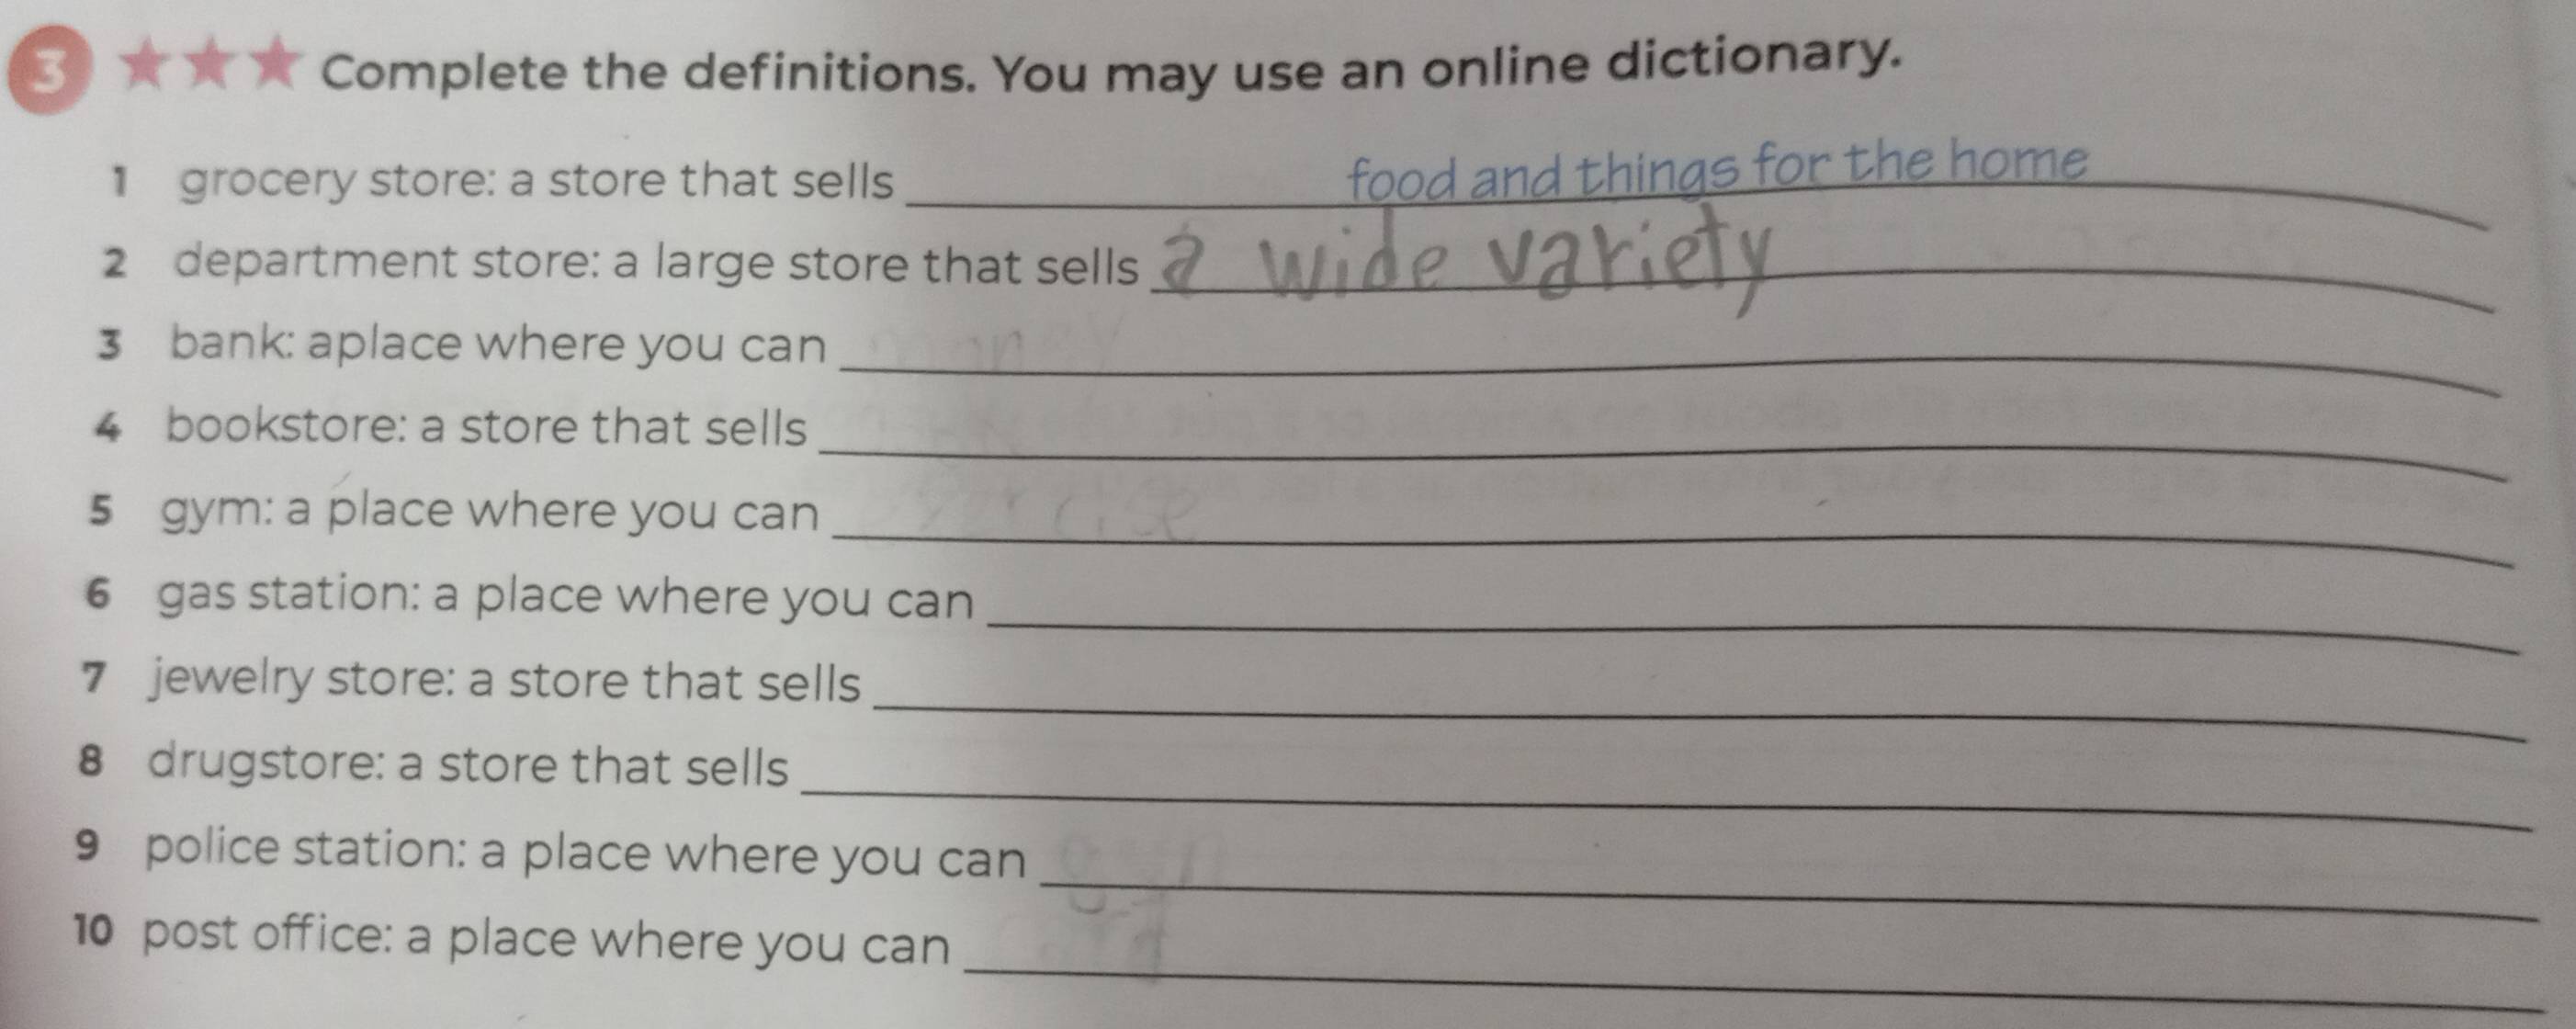 3 ★★★ Complete the definitions. You may use an online dictionary.
1 grocery store: a store that sells food and things for the home
2 department store: a large store that sells a wide variety
3 bank: aplace where you can
4 bookstore: a store that sells
5 gym: a place where you can
6 gas station: a place where you can
7 jewelry store: a store that sells
8 drugstore: a store that sells
9 police station: a place where you can
10 post office: a place where you can